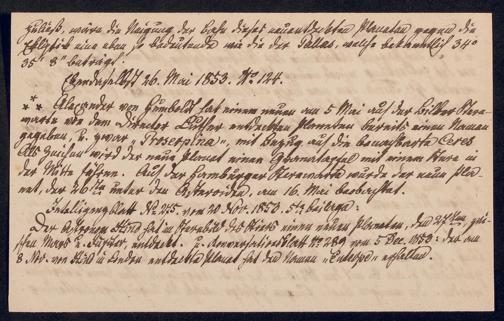 zuließ, wäre die Neigung der Bahn dieses neuentdeckten Planeten gegen die
Ekliptik eine eben so bedeutende wie die der Pallas, welche bekanntlich 34°
35' 8" beträgt.
Ebendaselbst 26. Mai 1853. No 124.
*** Alexander von Humboldt hat einem neuen am 5 Mai auf der Bilker Stern-
warte von dem Director Luther entdeckten Planeten bereits einen Namen
gegeben, u. zwar „Proserpina", mit Bezug auf die benachbarte Ceres
Als Zeichen wird der neue Planet einen Granatapfel mit einem Stern in
der Mitte führen. Auf der Hamburger Sternwarte wurde der neue Pla-
net, der 26te unter den Asteroiden, am 16. Mai beobachtet.
Intelligenzblatt No 275. vom 20 Nov. 1853. 5te Beilage:
Der Astronom Hind hat im des einen neuen Planeten, den 27ten, zwi-
schen Mars u. Jupiter, entdeckt. Conversationsblatt No 289 vom 5 Dec. 1853: der am
8. Nov. von Hind in London entdeckte Planet hat den Namen „Euterpe" erhalten.